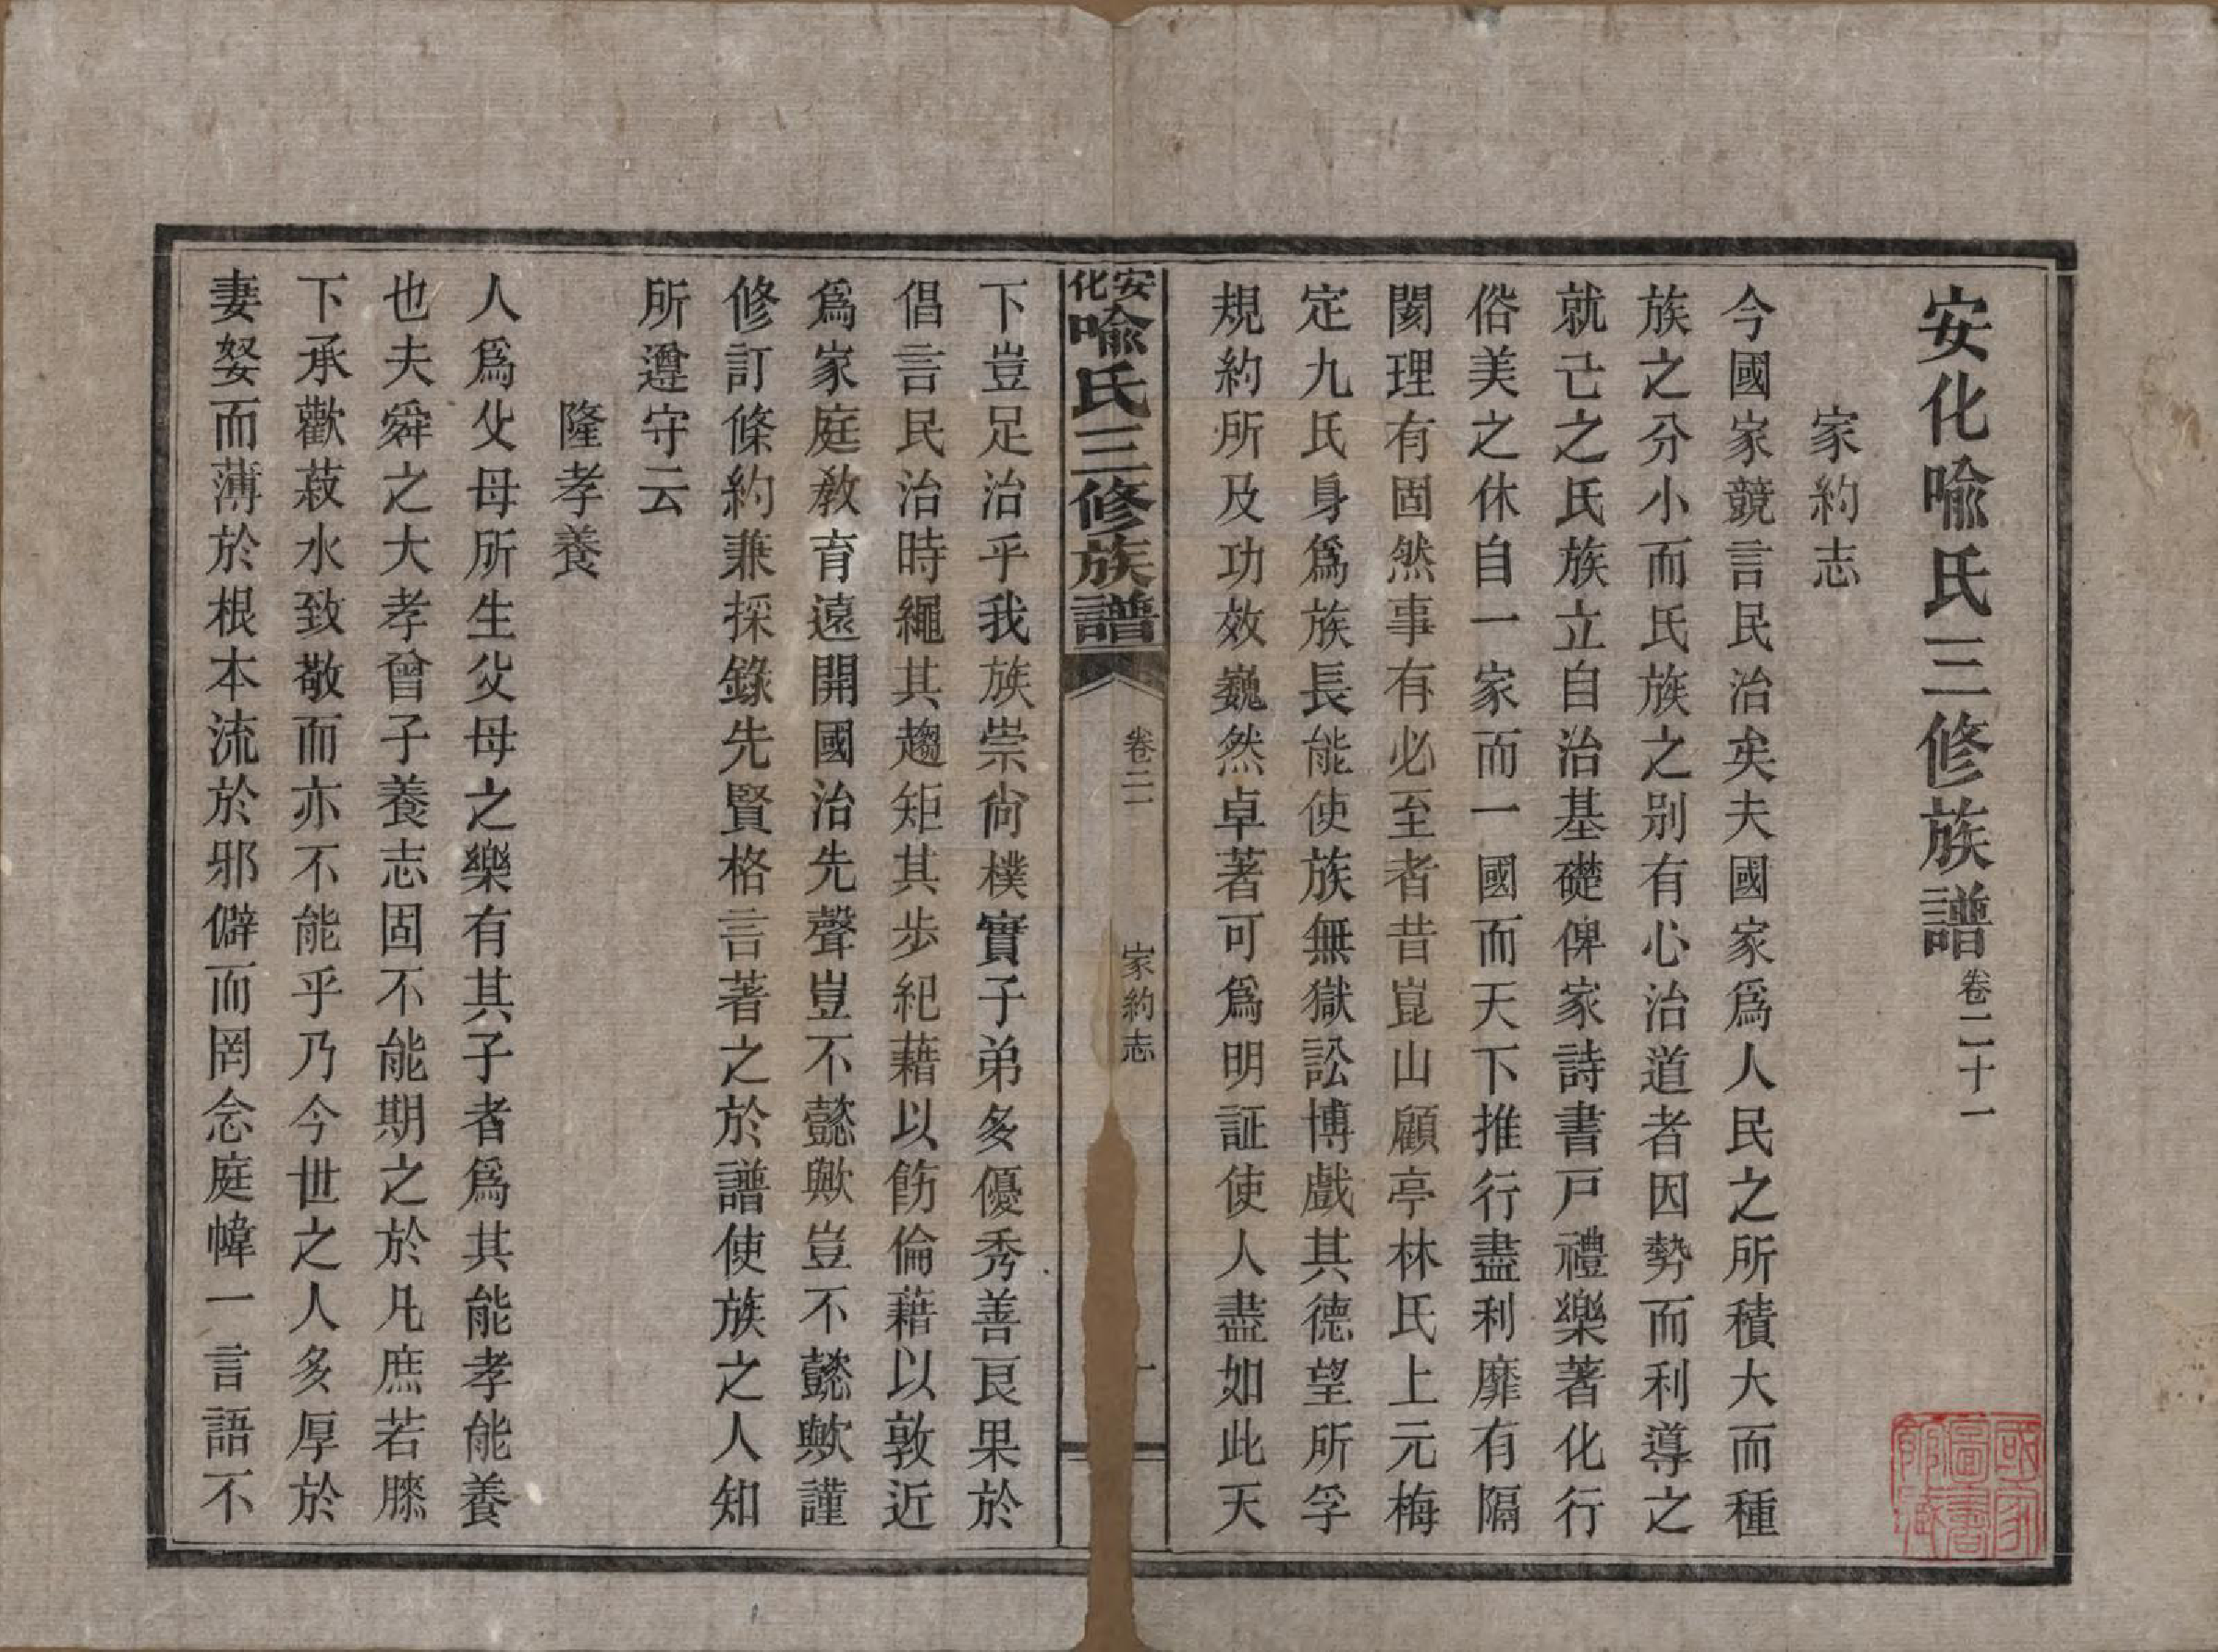 安化喻氏三修族譜卷二十一
家約志
今國家競言民治矣夫國家爲人民之所積大而種
族之分小而氏族之別有心治道者因勢而利導之
就己之氏族立自治基礎俾家詩書戸禮樂著化行
俗美之休自一家而一國而天下推行盡利靡有隔
閡理有固然事有必至者昔崑山顧亭林氏上元梅
定九氏身爲族長能使族無獄訟博戲其德望所孚
規約所及功效巍然卓著可爲明証使人盡如此天
安化喻氏三修族譜
卷二一
家約志
一
下豈足治乎我族崇尙樸實子弟多優秀善良果於
倡言民治時繩其趨矩其步紀藉以飭倫藉以敦近
爲家庭敎育遠開國治先聲豈不懿歟豈不懿歟謹
修訂條約兼採錄先賢格言著之於譜使族之人知
所遵守云
隆孝養
人爲父母所生父母之樂有其子者爲其能孝能養
也夫舜之大孝曾子養志固不能期之於凡庶若膝
下承歡菽水致敬而亦不能乎乃今世之人多厚於
妻孥而薄於根本流於邪僻而罔念庭幃一言語不
國家圖書館藏